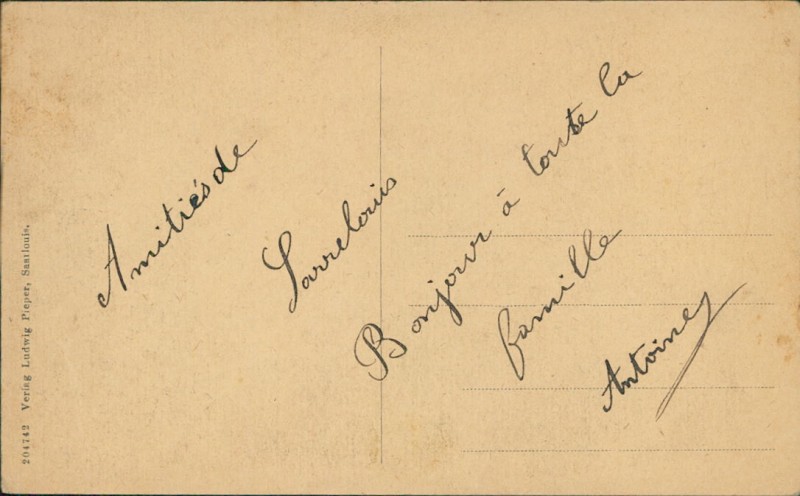 Amitiés de
Sarrelouis
Bonjour à toute la
famille
Antoine
204742 Verlag Ludwig Pieper, Saarlouis.